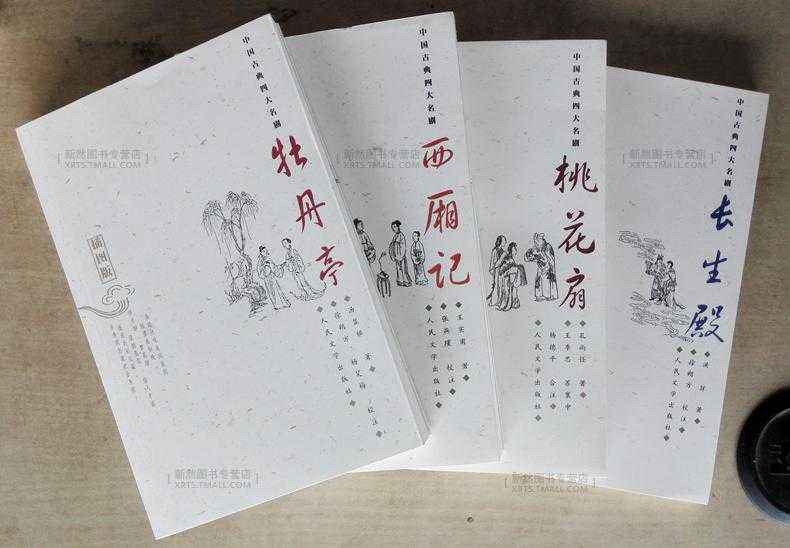 中国古典四大名剧
牡丹亭
插图版
汤显祖 著
徐朔方 杨笑梅 校注
人民文学出版社
中国古典四大名剧
西厢记
王实甫 著
张燕瑾 校注
人民文学出版社
中国古典四大名剧
桃花扇
孔尚任 著
王季思 苏寰中
杨德平 合注
人民文学出版社
中国古典四大名剧
长生殿
洪昇 著
徐朔方 校注
人民文学出版社
[新然图书专营店]
XRTS.TMALL.COM
[新然图书专营店]
XRTS.TMALL.COM
[新然图书专营店]
XRTS.TMALL.COM
[新然图书专营店]
XRTS.TMALL.COM
[新然图书专营店]
XRTS.TMALL.COM